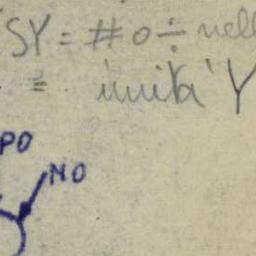 SY = # o ÷ nell
= unità Y
PO
NO